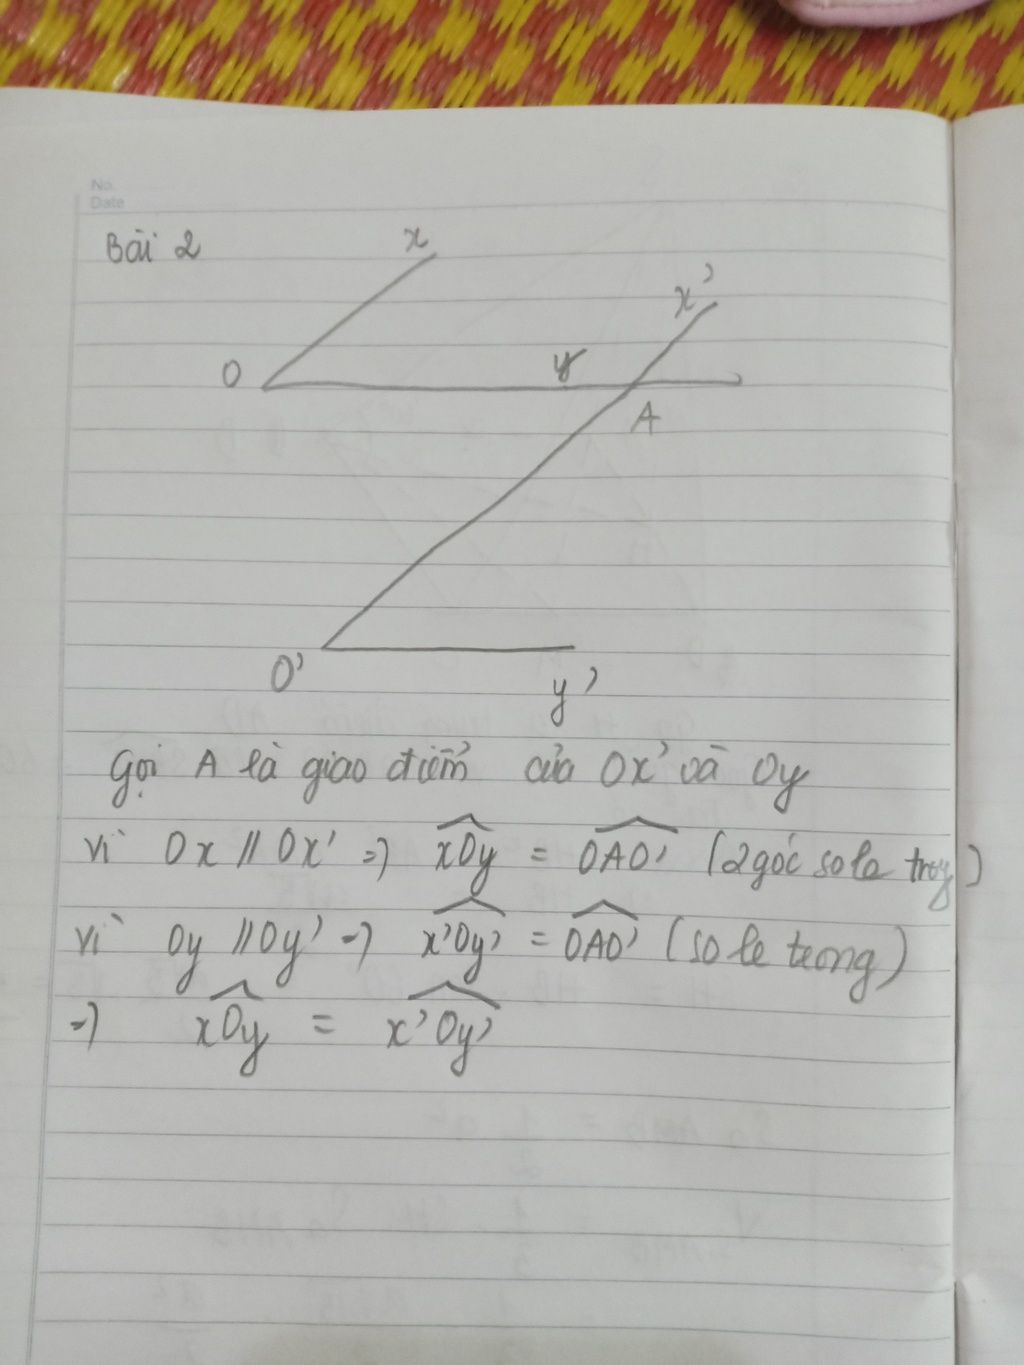 No.
Date
Bài 2
x
x'
O
y
A
O'
y'
Gọi A là giao điểm của Ox' và Oy
Vì Ox // Ox' => xOy = OAO' (2 góc so le trog)
Vì Oy // Oy' => x'Oy' = OAO' (so le trong)
=> xOy = x'Oy'